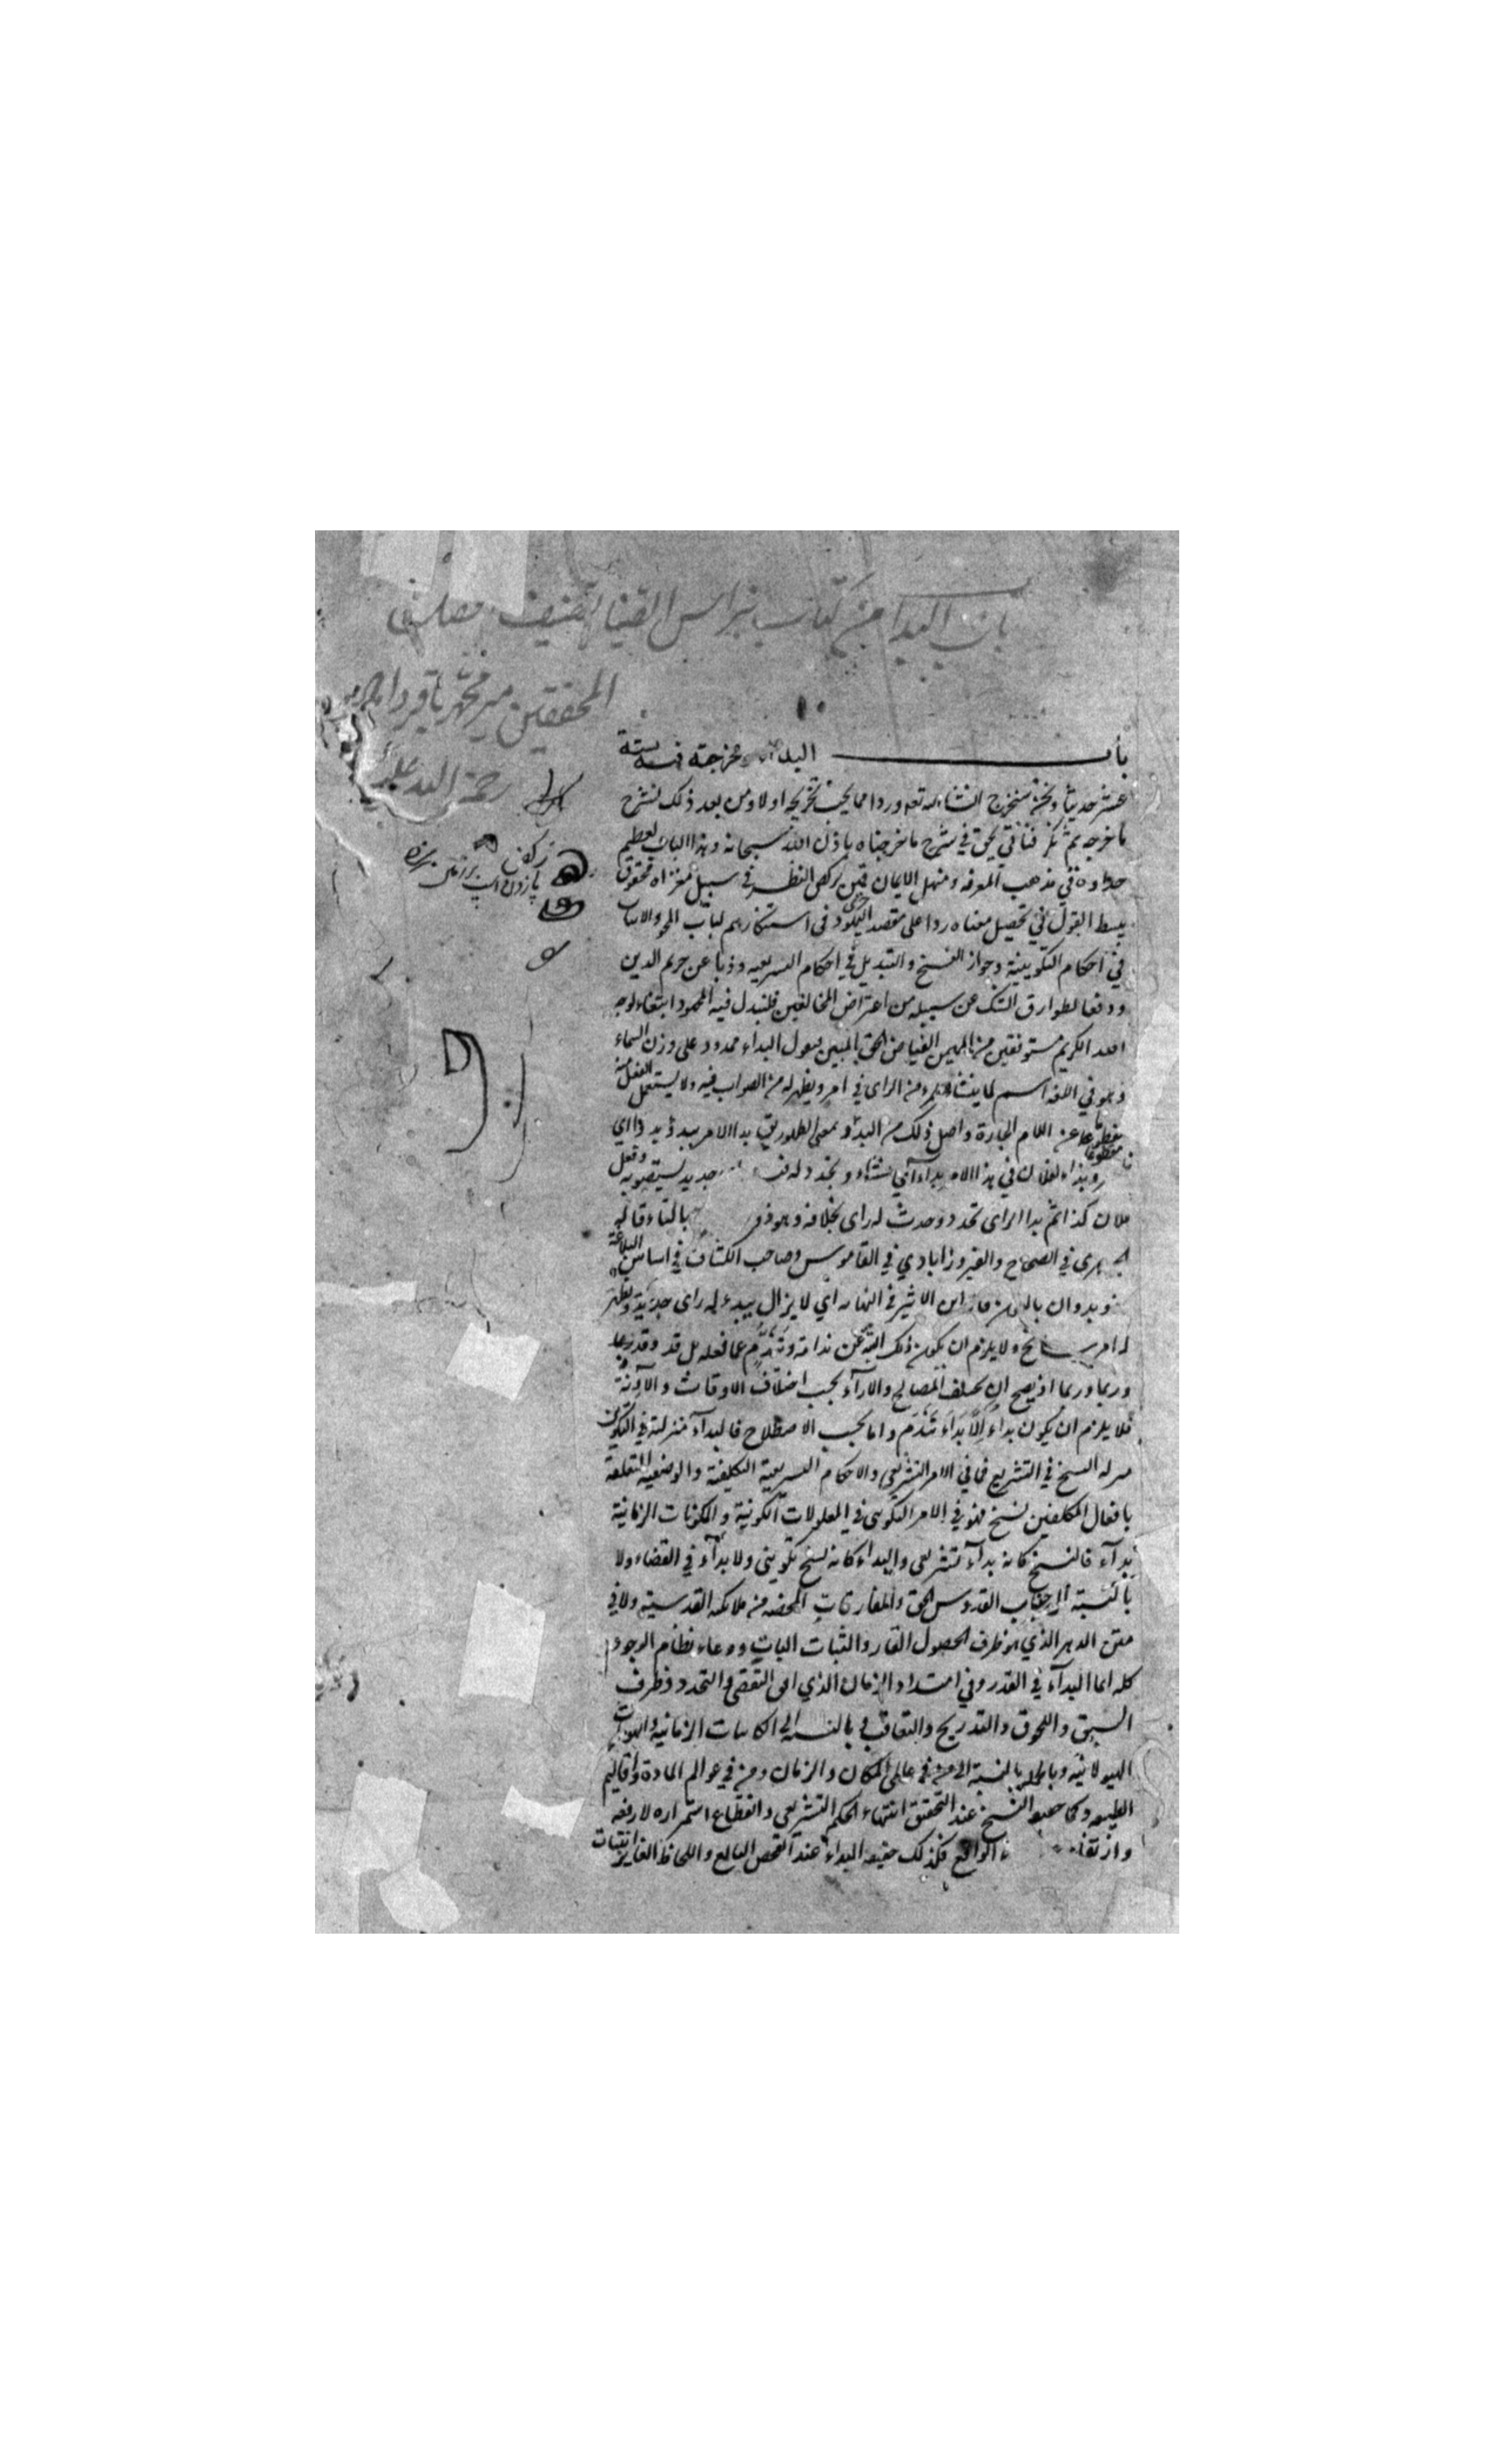 باب البدا من كتاب نبراس الضيا تصنيف
المحققين مير محمد باقر داماد
رحمة الله عليه
باب البداء مخرجة فيه ستة
عشر حديثا ونحن سنخرج انشاء الله تعالى وردا مما يجب تخريجه اولا ومن بعد ذلك نشرح
ما خرجه ثم في شرح ما خرجناه باذن الله سبحانه وهذا الباب لعظيم
في مذهب المعرفه ومنهل الايمان قمين بركض النظر في سبيل مغزاه محقوق
ببسط القول في تحصيل معناه ردا على مقصد اليهود في استنكارهم لباب المحو والاثبات
في احكام التكوينية وجواز النسخ والتبديل في احكام الشريعه وذبا عن حريم الدين
ودفعا لطوارق الشك عن سبيله من اعتراض المخالفين فلنبذل فيه المجهود ابتغاء لوجه
الله الكريم مستوفقين من المهيمن الفياض الحق المبين فنقول البداء ممدود على وزن السماء
وهو في اللغه اسم لما ينشاء للمرء من الراى في امر ويظهر له من الصواب فيه ولا يستعمل الفعل منه
مفطوما عن اللام الجارة واصل ذلك من البدو بمعنى الظهور يق بدا الامر يبدو
وبدا لفلان في هذا الامر بداء اي نشاء وتجدد له فيه جديد يستصوبه وفعل
فلان كذا ثم بدا له راى تجدد وحدث له راى بخلافه وهو ذو بالتاء قاله
الجوهرى في الصحاح والفيروزابادي في القاموس وصاحب الكشاف في اساس البلاغة
وذو بدوان بالنون قاله ابن الاثير في النهايه اي لا يزال يبدو له راى جديد ويظهر
له امر سانح ولا يلزم ان يكون ذلك البتة عن ندامة وتندم عما فعله بل قد وقد
وربما وربما اذ يصح ان يختلف المصالح والاراء بحسب اختلاف الاوقات والآونة
فلا يلزم ان يكون بداء الا بداء تندم واما بحسب الاصطلاح فالبداء منزلته في التكوين
منزلة النسخ في التشريع فما في الامر التشريعي والاحكام الشريعية التكليفية والوضعية المتعلقة
بافعال المكلفين نسخ فهو في الامر التكويني في المعلولات الكونية والمكونات الزمانية
بداء فالنسخ كانه بداء تشريعي والبداء كانه نسخ تكويني ولا بداء في القضاء ولا
بالنسبة الى جناب القدوس الحق والمفارقات المحضه من ملائكته القدسية ولا في
متن الدهر الذي هو ظرف الحصول القار والثبات البات ووعاء نظام الوجود
كله انما البداء في القدر وفي امتداد الزمان الذي افق التقضي والتجدد وظرف
السبق واللحوق والتدريج والتعاقب وبالنسبة الى الكاينات الزمانيه والهويات
الهيولانيه وبالجملة بالنسبة الى من في عالمي المكان والزمان ومن في عوالم المادة واقاليم
الطبيعه وكما حقيقة النسخ عند التحقيق انتهاء الحكم التشريعي وانقطاع استمراره لا رفعه
وارتفاعه الواقع فكذلك حقيقه البداء عند الفحص البالغ واللحاظ الغاير انبتات